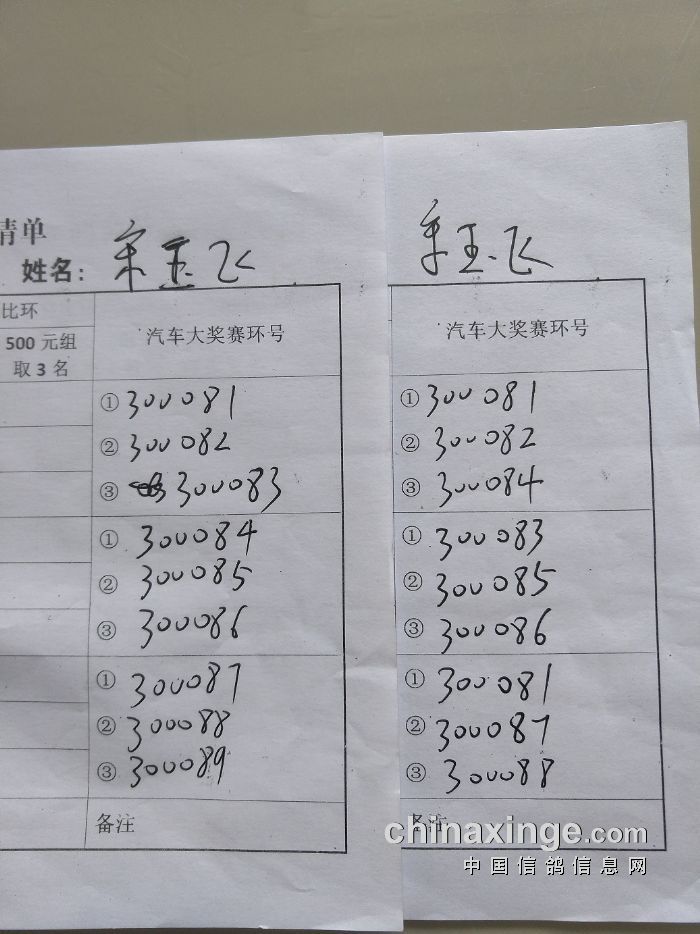 清单
姓名：宋玉飞
比环
500 元组
取 3 名
汽车大奖赛环号
① 300081
② 300082
③ 300083
① 300084
② 300085
③ 300086
① 300087
② 300088
③ 300089
备注
玉飞
汽车大奖赛环号
① 300081
② 300082
③ 300084
① 300083
② 300085
③ 300086
① 300081
② 300087
③ 300088
备注
chinaxinge.com
中国信鸽信息网